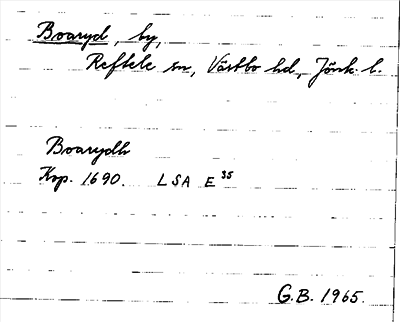 Boaryd, by,
Reftele sn, Västbo hd, Jönk. l.
Boarydh
Kop. 1690. LSA E 35
G.B. 1965.